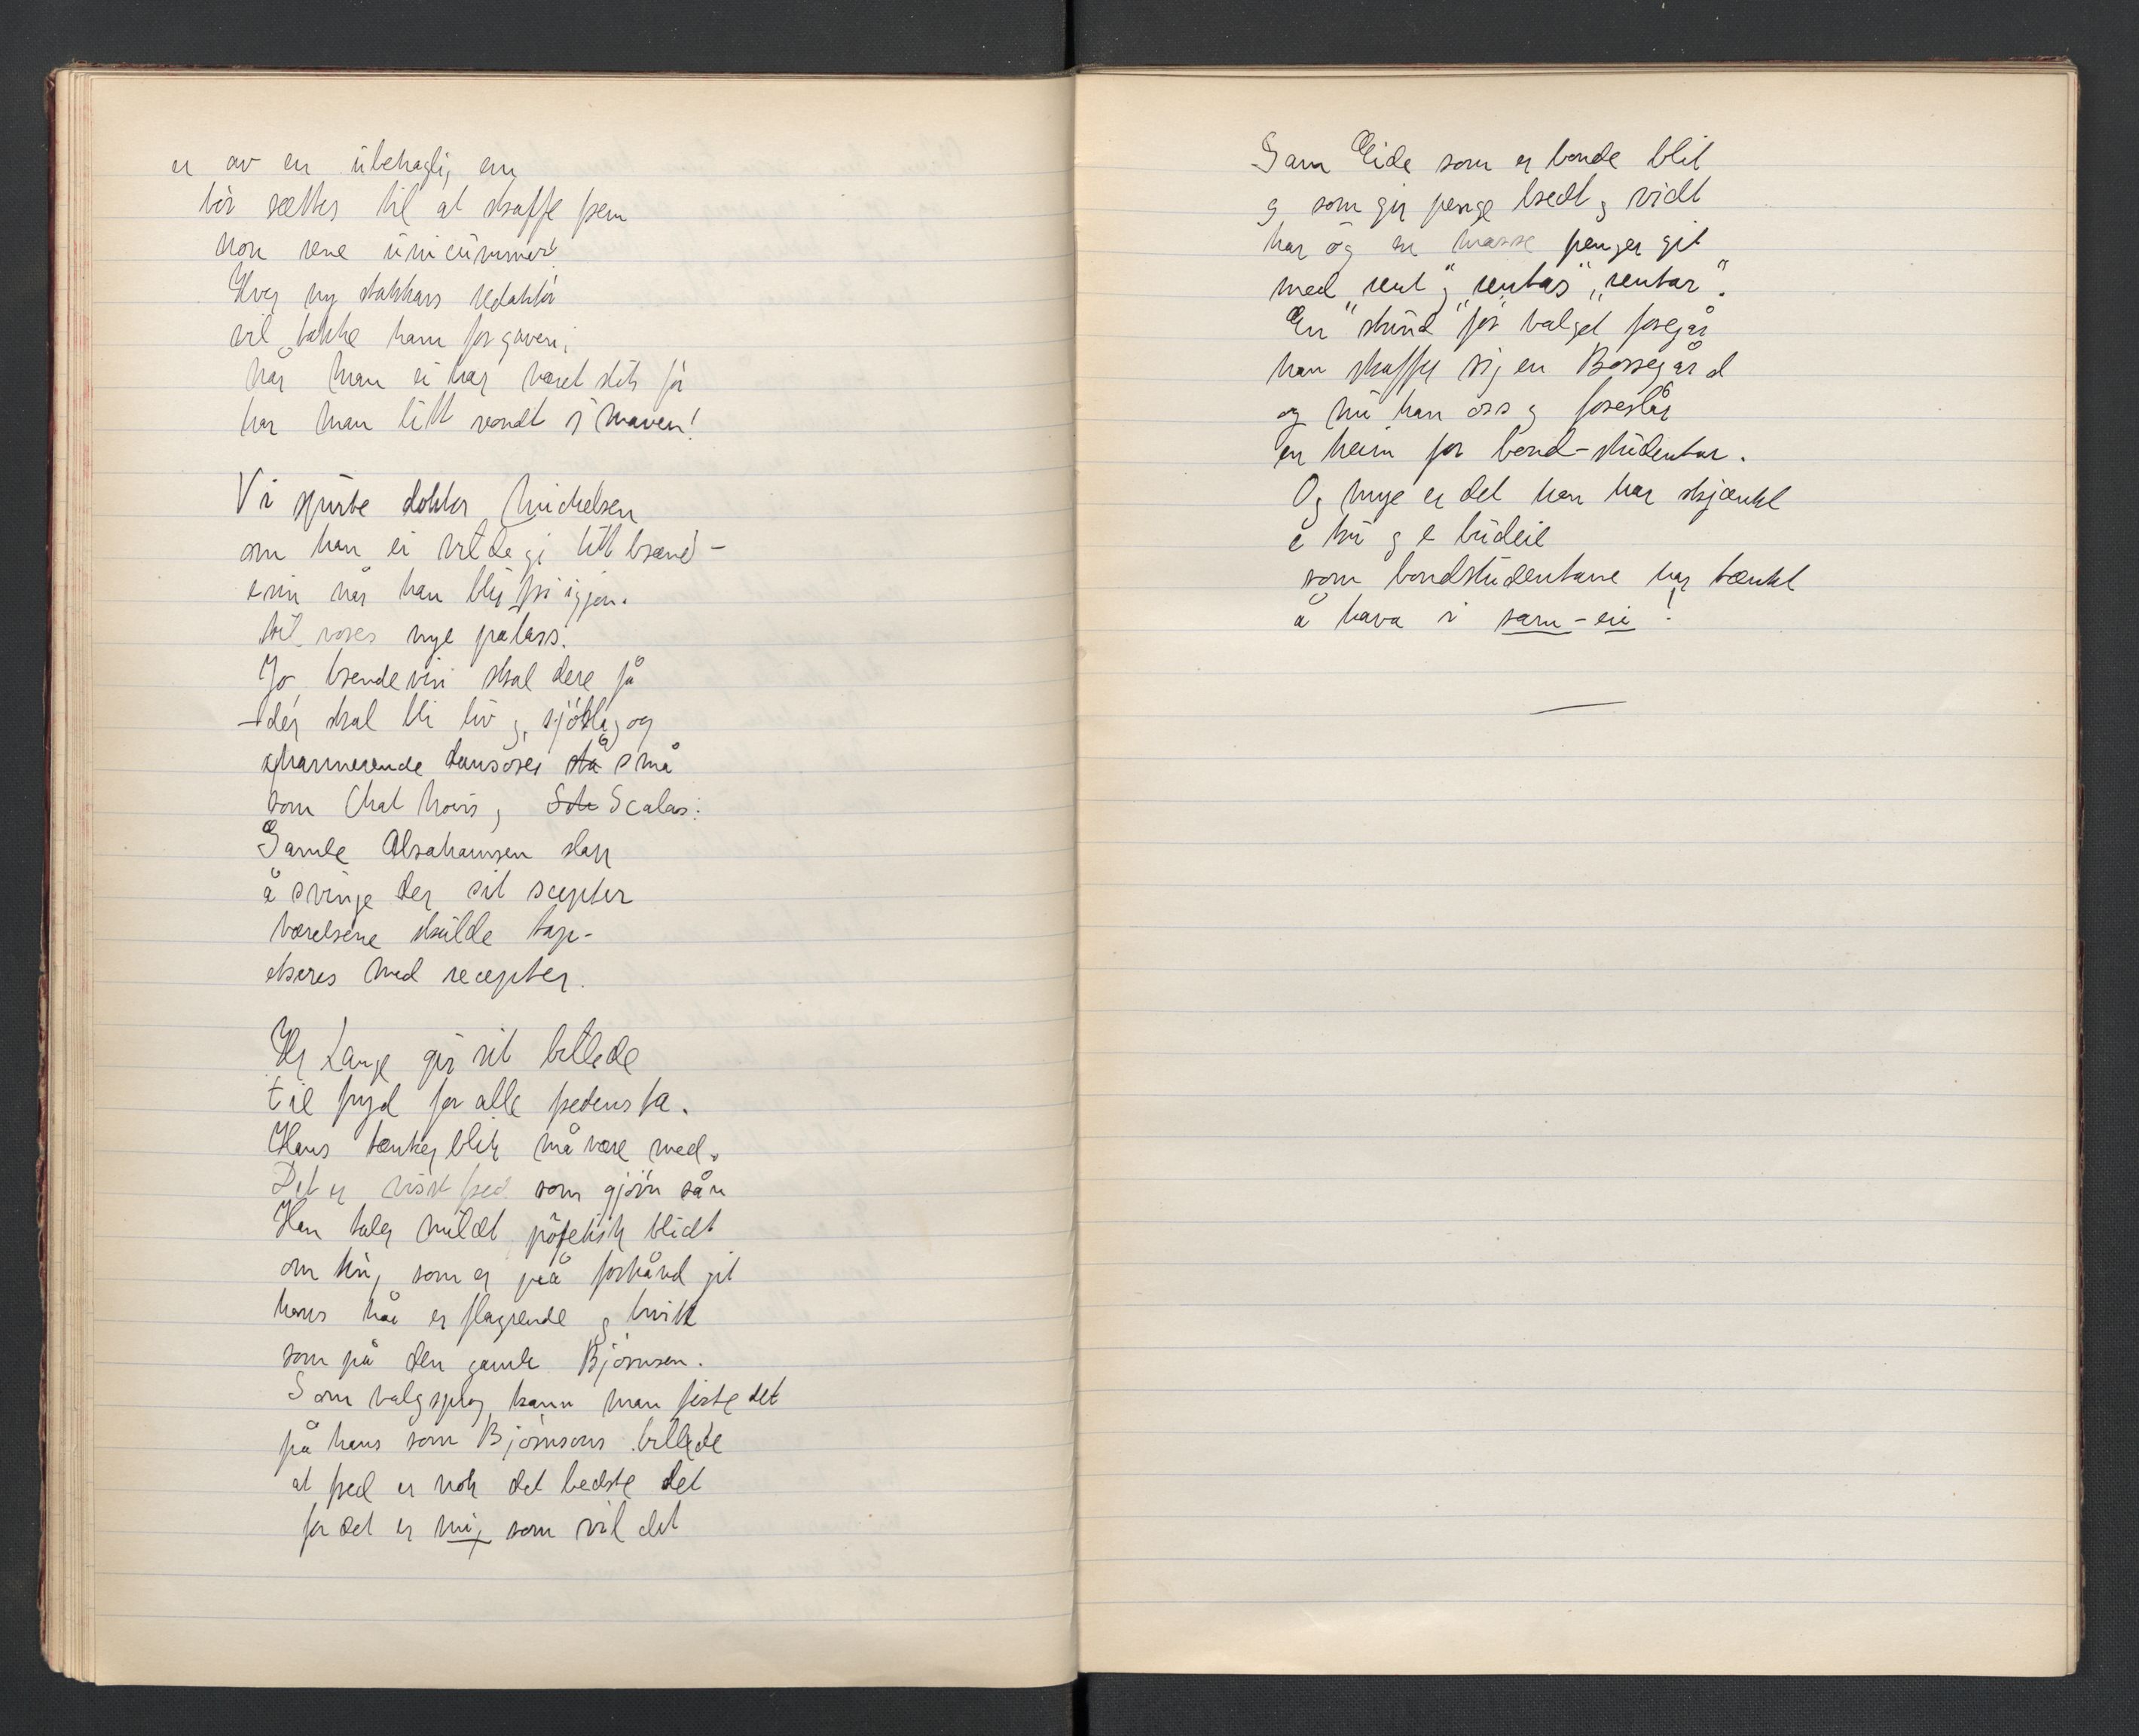 er av en ubehagli, en,
bör sættes til at skaffe frem
non rene unicummer
Hver ny stakkars redaktör
vil takke ham for gaven;
når man ei har været slik för
har man litt vondt i maven!
Vi spurte doktor Michelsen
om han ei vilde gi litt brænd-
evin når han blir fri igjen.
til vores nye palass.
Jo, brendevin skal dere få
– der skal bli liv og sjöslag og
scharmerende danseser stå små
som Chat Noirs og Sch Scalas:
Gamle Abrahamsen slapp
å svinge der sit scepter
værelsene skulde tap-
etseres med recepter.
Hr Lange gir sit billede
til fryd for alle fredens fa.
Hans tænkerblik må være med.
Det er visst fred som gjör'n sån
Han taler mildt pofetisk blidt
om ting som er på forhånd git
hans hår er flagrende og hvitt
som på den gamle Björnsen.
Som valgsprog kann man feste det
på hans som Björnsons billede
at fred er nok det bedste det
for det er mig som vil det
Sam Eide som er bonde blit
og som gir penge bredt og vidt
har og en masse penger git
med "rent" og "rentas", "rentar".
En "stund" för valget foregår
han skaffer sig en Borregård
og nu han oss og foreslår
en heim for bond-studentar.
Og mye er det han har skjænkt
e ku og e budeie
som bondstudentane har tænkt
å hava i sam-eie!